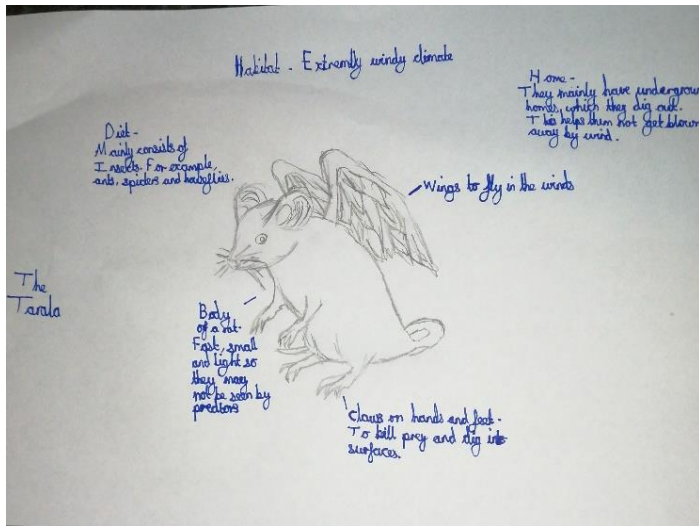 Habitat - Extremly windy climate
Home -
They mainly have undergrou
homes, which they dig out.
This helps them not get blown
away by wind.
Diet -
Mainly consists of
Insects. For example,
ants, spiders and houseflies.
Wings to fly in the winds
The
Tarala
Body
of a rat.
Fast, small
and light so
they may
not be seen by
predtors
Claws on hands and feet -
To kill prey and dig into
surfaces.